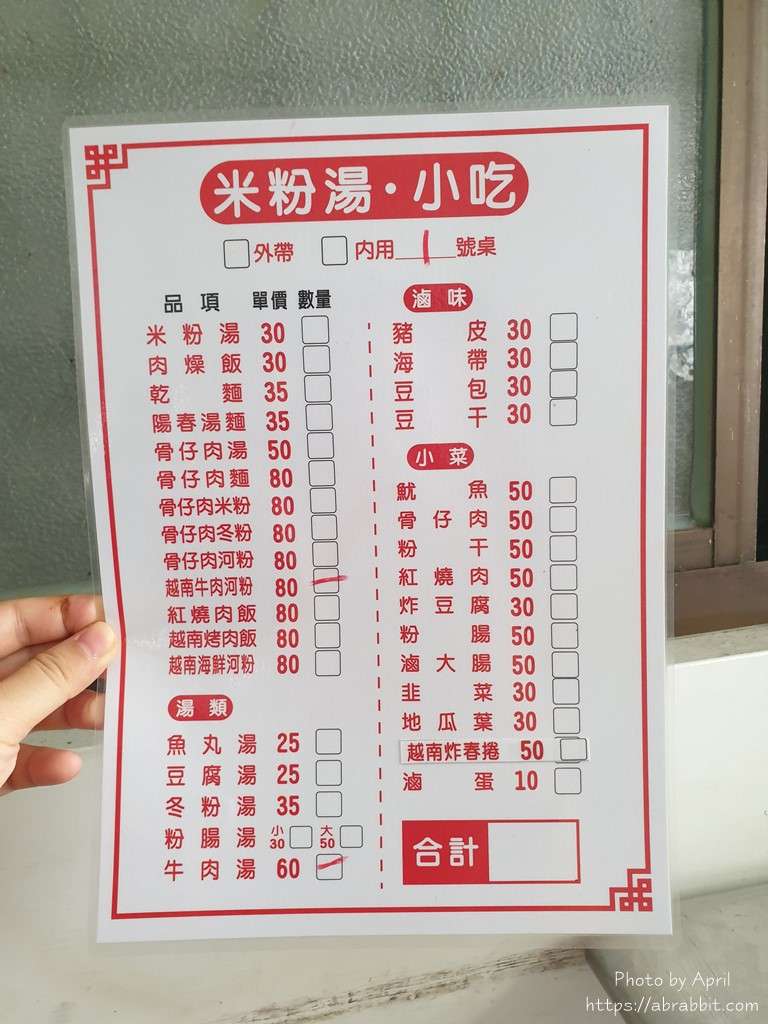 米粉湯·小吃
外帶 內用 1 號桌
品項 單價 數量
米粉湯 30
肉燥飯 30
乾麵 35
陽春湯麵 35
骨仔肉湯 50
骨仔肉麵 80
骨仔肉米粉 80
骨仔肉冬粉 80
骨仔肉河粉 80
越南牛肉河粉 80
紅燒肉飯 80
越南烤肉飯 80
越南海鮮河粉 80
湯類
魚丸湯 25
豆腐湯 25
冬粉湯 35
粉腸湯 小30 大50
牛肉湯 60
滷味
豬皮 30
海帶 30
豆包 30
豆干 30
小菜
魷魚 50
骨仔肉 50
粉干 50
紅燒肉 50
炸豆腐 30
粉腸 50
滷大腸 50
韭菜 30
地瓜葉 30
越南炸春捲 50
滷蛋 10
合計
Photo by April
https://abrabbit.com